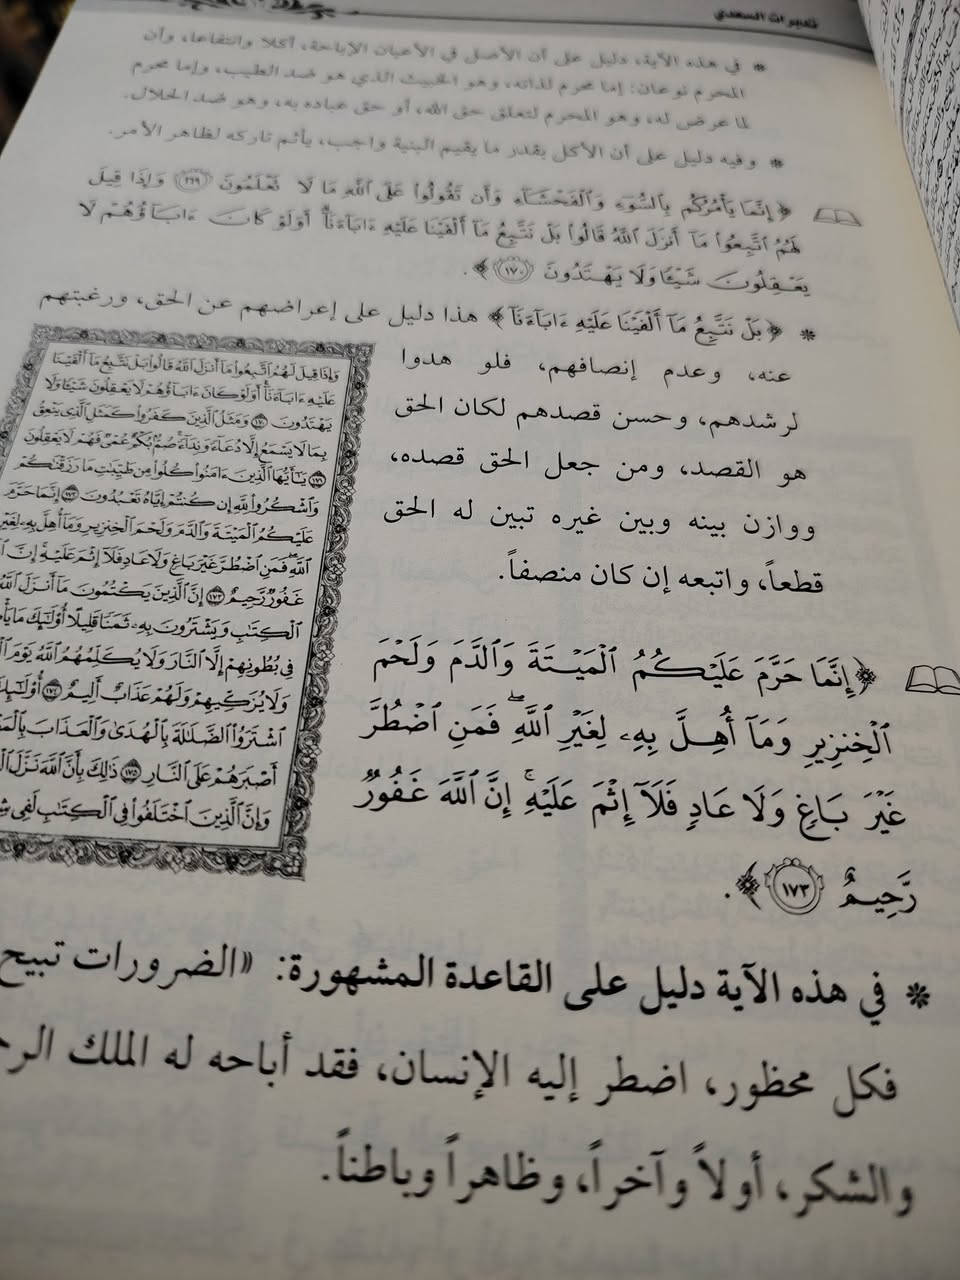 تدبرات السعدي
* في هذه الآية، دليل على أن الأصل في الأعيان الإباحة، أكلا وانتفاعا، وأن
المحرم نوعان: إما محرم لذاته، وهو الخبيث الذي هو ضد الطيب، وإما محرم
لما عرض له، وهو المحرم لتعلق حق الله، أو حق عباده به، وهو ضد الحلال.
* وفيه دليل على أن الأكل بقدر ما يقيم البنية واجب، يأثم تاركه لظاهر الأمر.
﴿ إِنَّمَا يَأْمُرُكُم بِالسُّوٓءِ وَٱلْفَحْشَآءِ وَأَن تَقُولُوا۟ عَلَى ٱللَّهِ مَا لَا تَعْلَمُونَ ١٦٩ وَإِذَا قِيلَ
لَهُمُ ٱتَّبِعُوا۟ مَآ أَنزَلَ ٱللَّهُ قَالُوا۟ بَلْ نَتَّبِعُ مَآ أَلْفَيْنَا عَلَيْهِ ءَابَآءَنَآ أَوَلَوْ كَانَ ءَابَآؤُهُمْ لَا
يَعْقِلُونَ شَيْـًٔا وَلَا يَهْتَدُونَ ١٧٠ ﴾.
* ﴿ بَلْ نَتَّبِعُ مَآ أَلْفَيْنَا عَلَيْهِ ءَابَآءَنَآ ﴾ هذا دليل على إعراضهم عن الحق، ورغبتهم
عنه، وعدم إنصافهم، فلو هدوا
لرشدهم، وحسن قصدهم لكان الحق
هو القصد، ومن جعل الحق قصده،
ووازن بينه وبين غيره تبين له الحق
قطعاً، واتبعه إن كان منصفاً.
وَإِذَا قِيلَ لَهُمُ ٱتَّبِعُوا۟ مَآ أَنزَلَ ٱللَّهُ قَالُوا۟ بَلْ نَتَّبِعُ مَآ أَلْفَيْنَا
عَلَيْهِ ءَابَآءَنَآ أَوَلَوْ كَانَ ءَابَآؤُهُمْ لَا يَعْقِلُونَ شَيْـًٔا وَلَا
يَهْتَدُونَ ١٧٠ وَمَثَلُ ٱلَّذِينَ كَفَرُوا۟ كَمَثَلِ ٱلَّذِى يَنْعِقُ
بِمَا لَا يَسْمَعُ إِلَّا دُعَآءً وَنِدَآءً صُمٌّۢ بُكْمٌ عُمْىٌ فَهُمْ لَا يَعْقِلُونَ
١٧١ يَـٰٓأَيُّهَا ٱلَّذِينَ ءَامَنُوا۟ كُلُوا۟ مِن طَيِّبَـٰتِ مَا رَزَقْنَـٰكُمْ
وَٱشْكُرُوا۟ لِلَّهِ إِن كُنتُمْ إِيَّاهُ تَعْبُدُونَ ١٧٢ إِنَّمَا حَرَّمَ
عَلَيْكُمُ ٱلْمَيْتَةَ وَٱلدَّمَ وَلَحْمَ ٱلْخِنزِيرِ وَمَآ أُهِلَّ بِهِۦ لِغَيْرِ
ٱللَّهِ فَمَنِ ٱضْطُرَّ غَيْرَ بَاغٍ وَلَا عَادٍ فَلَآ إِثْمَ عَلَيْهِ إِنَّ ٱللَّهَ
غَفُورٌ رَّحِيمٌ ١٧٣ إِنَّ ٱلَّذِينَ يَكْتُمُونَ مَآ أَنزَلَ ٱللَّهُ
ٱلْكِتَـٰبِ وَيَشْتَرُونَ بِهِۦ ثَمَنًا قَلِيلًا أُو۟لَـٰٓئِكَ مَا
فِى بُطُونِهِمْ إِلَّا ٱلنَّارَ وَلَا يُكَلِّمُهُمُ ٱللَّهُ يَوْمَ
وَلَا يُزَكِّيهِمْ وَلَهُمْ عَذَابٌ أَلِيمٌ ١٧٤
ٱشْتَرَوُا۟ ٱلضَّلَـٰلَةَ بِٱلْهُدَىٰ وَٱلْعَذَابَ
أَصْبَرَهُمْ عَلَى ٱلنَّارِ ١٧٥ ذَٰلِكَ بِأَنَّ ٱللَّهَ نَزَّلَ
وَإِنَّ ٱلَّذِينَ ٱخْتَلَفُوا۟ فِى ٱلْكِتَـٰبِ لَفِى
﴿ إِنَّمَا حَرَّمَ عَلَيْكُمُ ٱلْمَيْتَةَ وَٱلدَّمَ وَلَحْمَ
ٱلْخِنزِيرِ وَمَآ أُهِلَّ بِهِۦ لِغَيْرِ ٱللَّهِۖ فَمَنِ ٱضْطُرَّ
غَيْرَ بَاغٍ وَلَا عَادٍ فَلَآ إِثْمَ عَلَيْهِۚ إِنَّ ٱللَّهَ غَفُورٌ
رَّحِيمٌ ١٧٣ ﴾.
* في هذه الآية دليل على القاعدة المشهورة: «الضرورات تبيح
فكل محظور، اضطر إليه الإنسان، فقد أباحه له الملك
والشكر، أولاً وآخراً، وظاهراً وباطناً.